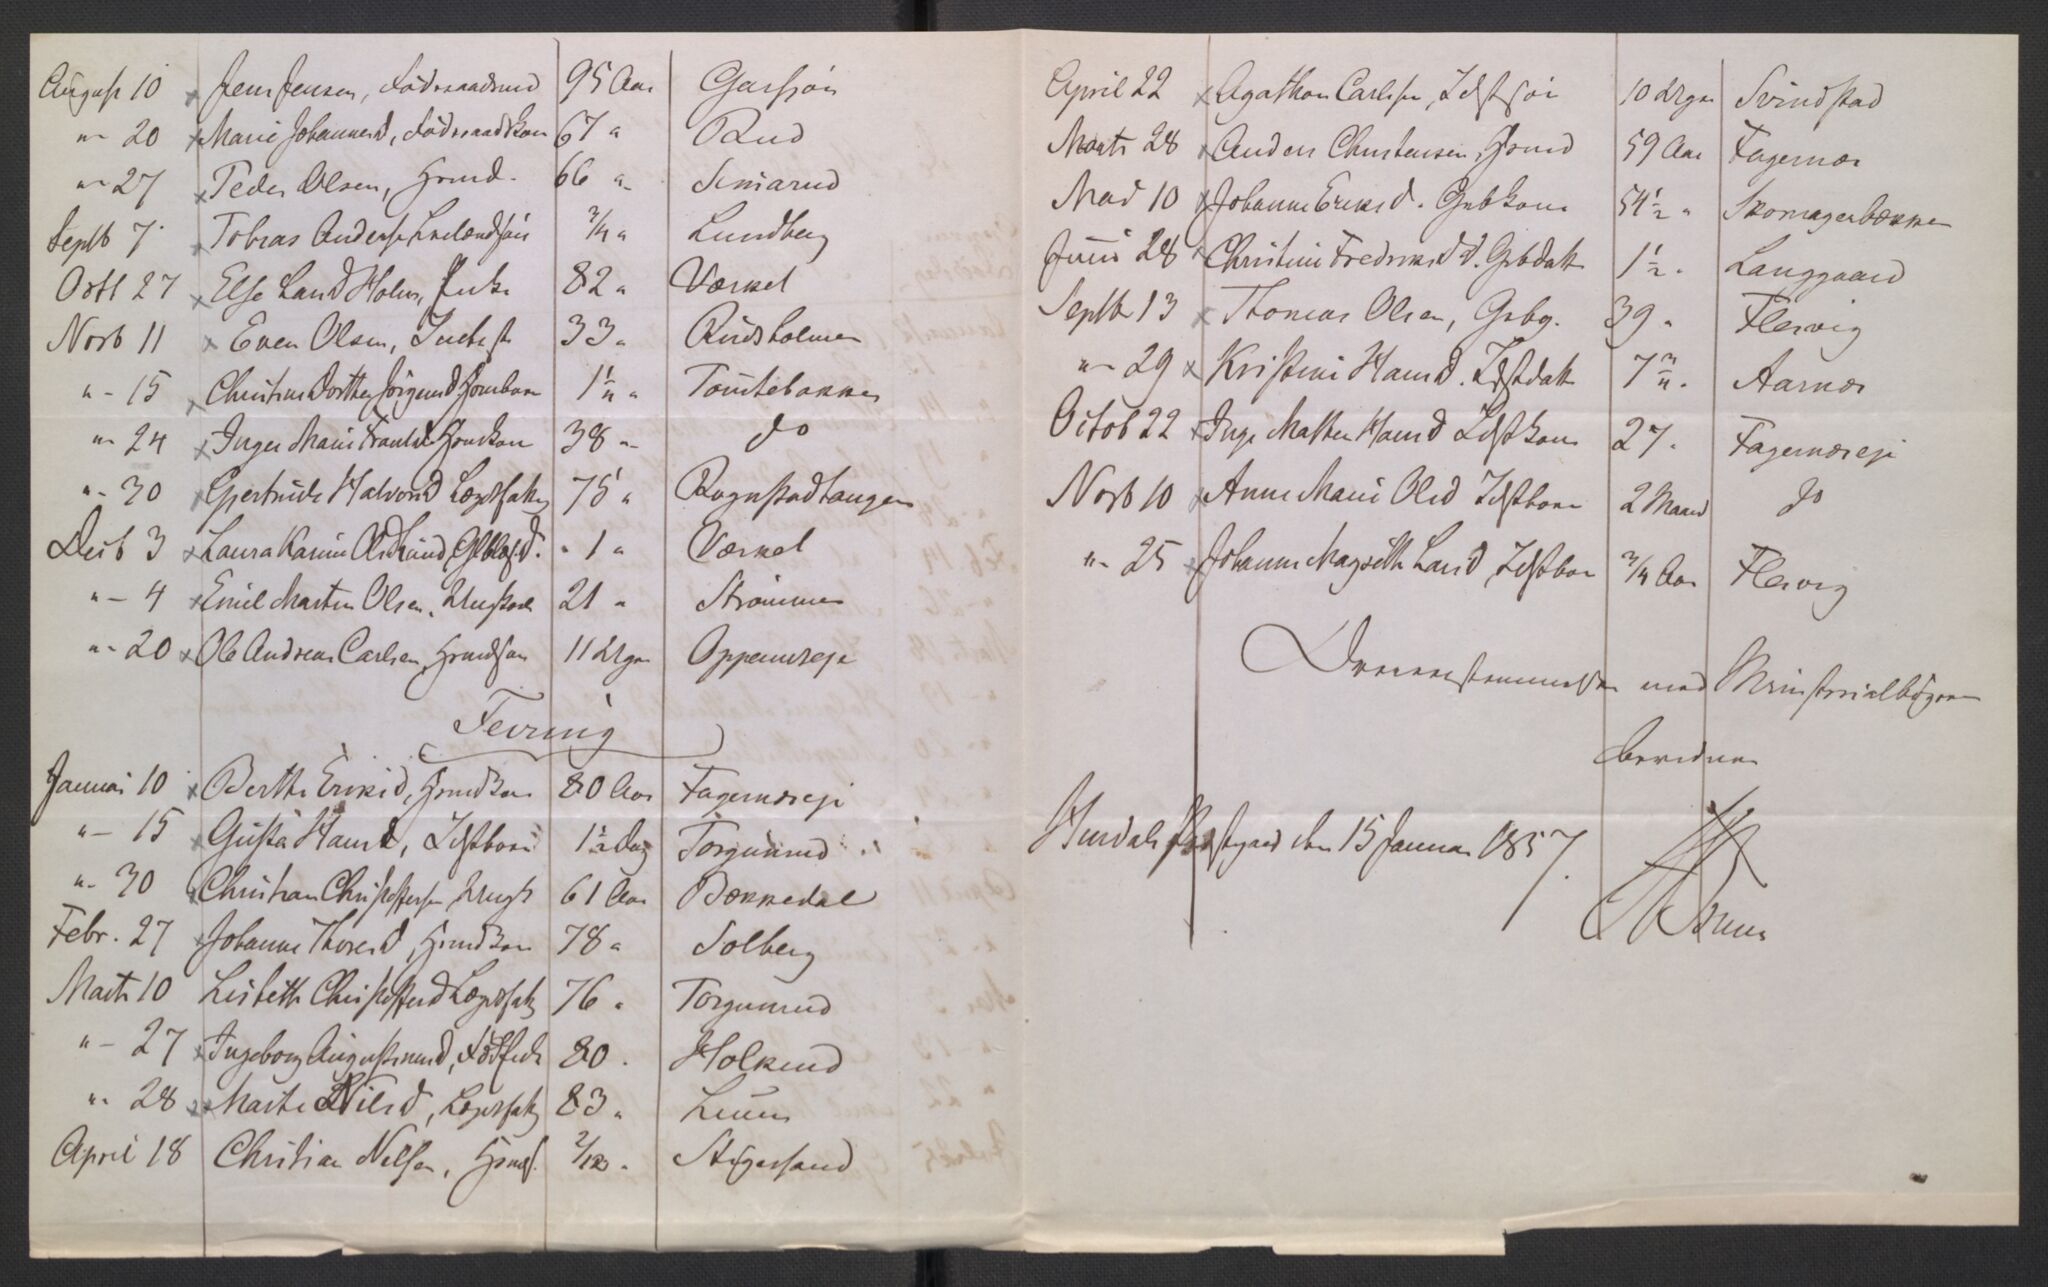 August 10 Jens Jensen, Föderaadsmd 95 Aar Garsjöen
"- 20 Marie Johannesd, Föderaadskone 67 " Rud
"- 27 Peder Olsen, Hmd. 66 "
Septb 7 Tobias Anderse 3/4 " Lundberg
Octb 27 Else Larsd Holm, Enke 82 " Værket
Novb 11 Even Olsen, Inderst 33 " Rudsholmen
"- 15 Christine Dorthea Jörgensd Hmbarn 1 1/4 " Tömtebakken
"- 24 Inger Marie Hmdkone 38 "- do
"- 30 Gjertrude Halvorsd Lægdsfattig 75 " Rognstadtangen
Decb 3 Laura Karine Olsd " 1 " Værket
"- 4 Emil Martin Olsen, Ungkarl 21 " Strömmen
"- 20 Ole Andreas Carlsen, Hmdsön 11 Uger Oppemseje
Feiring
Januar 10 Berthe Eriksd, Hmdkone 80 Aar Fagernæseje
"- 15 Gusta Hansd, Idstbarn 1 1/2 Dag Torgunrud
"- 30 Christian Christoffersen 61 Aar Bækkedal
Febr. 27 Johanne Thoresd, Hmdkone 78 " Solberg
Marts 10 Lisbeth Christoffersd Lægdsfattig 76 " Torgunrud
"- 27 Ingeborg Augustinusd, 80 . Holkerud
"- 28 Marte Nilsd, Lægdsfattig 83 "
April 18 Christian Nilsen, Hmds. Stigersand
April 22 Agathon Carlsen, Idstsön 10 Uger Svindstad
Marts 28 Anders Christensen, Hmd 59 Aar Fagernæs
Mai 10 Johanne Eriksd. Gbkone 54 1/2 " Skomagerbækken
Juni 28 Christine Fredriksd. Gbdatt 1 1/2 " Langgaard
Septb 13 Thomas Olsen, Gbrg. 39 " Flesvig
"- 29 Kristine Hansd. Idstdatt 7 3/4 " Aarnæs
Octob 22 Inge Mathea Hansd Idstkone 27 " Fagernæseje
Novb 10 Anne Marie Olsd Idstbarn 2 Maand do
"- 25 Johanne Magrethe Larsd, Idstbarn 3/4 Aar Flesvig
Overensstemmelsen med Ministerialbogen
bevidner
Hurdals Præstgaard den 15 Januar 1857.